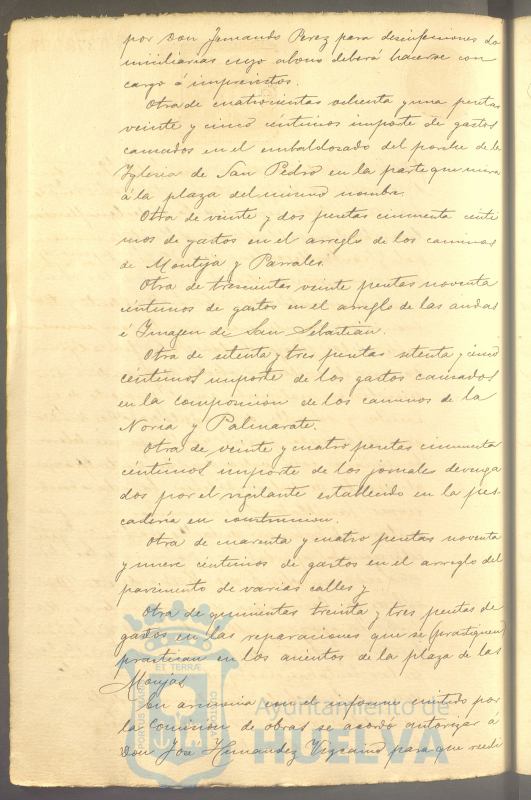 por Don Fernando Perez para desinfecciones do
miciliarias cuyo abono deberá hacerse con
cargo á imprevistos.
Otra de cuatrocientas ochenta y una pesetas
veinte y cinco céntimos importe de gastos
causados en el embaldosado del porche de la
Yglesia de San Pedro en la parte que mira
á la plaza del mismo nombre.
Otra de veinte y dos pesetas cincuenta cénti
mos de gastos en el arreglo de los caminos
de Montija y Parrales.
Otra de trescientas veinte pesetas noventa
céntimos de gastos en el arreglo de las andas
é Ymagen de San Sebastián.
Otra de setenta y tres pesetas setenta y cinco
céntimos importe de los gastos causados
en la composición de los caminos de la
Noria y Palmarate.
Otra de veinte y cuatro pesetas cincuenta
céntimos importe de los jornales devenga
dos por el vigilante establecido en la pes
cadería en construcción.
Otra de cuarenta y cuatro pesetas noventa
y nueve céntimos de gastos en el arreglo del
pavimento de varias calles y
Otra de quinientas treinta y tres pesetas de
gastos en las reparaciones que se (practiquen)
practican en los asientos de la plaza de las
Monjas.
En armonía con el informe emitido por
la Comisión de obras se acordó autorizar á
Don José Hernandez Vizcaino para que reedi
Ayuntamiento de
HUELVA
PORTUS MARIS
ET TERRÆ
CUSTODIA